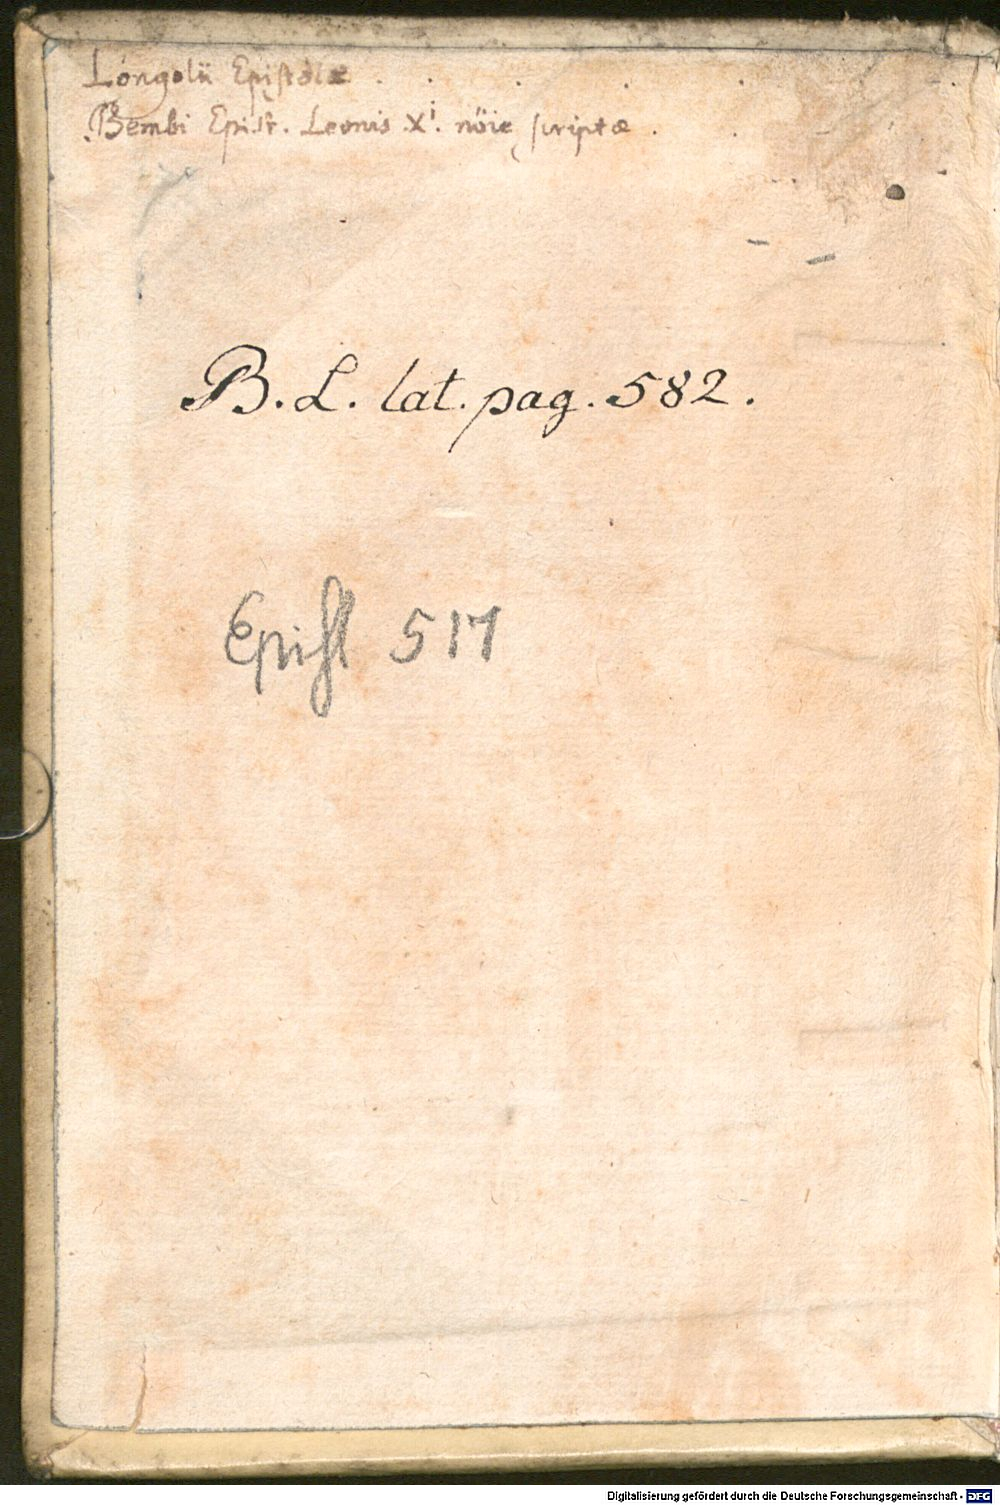 Longolii Epistolæ
Bembi Epist. Leonis .Xi. nōie scriptæ .
B. L. lat. pag. 582.
Epist 517
Digitalisierung gefördert durch die Deutsche Forschungsgemeinschaft - DFG